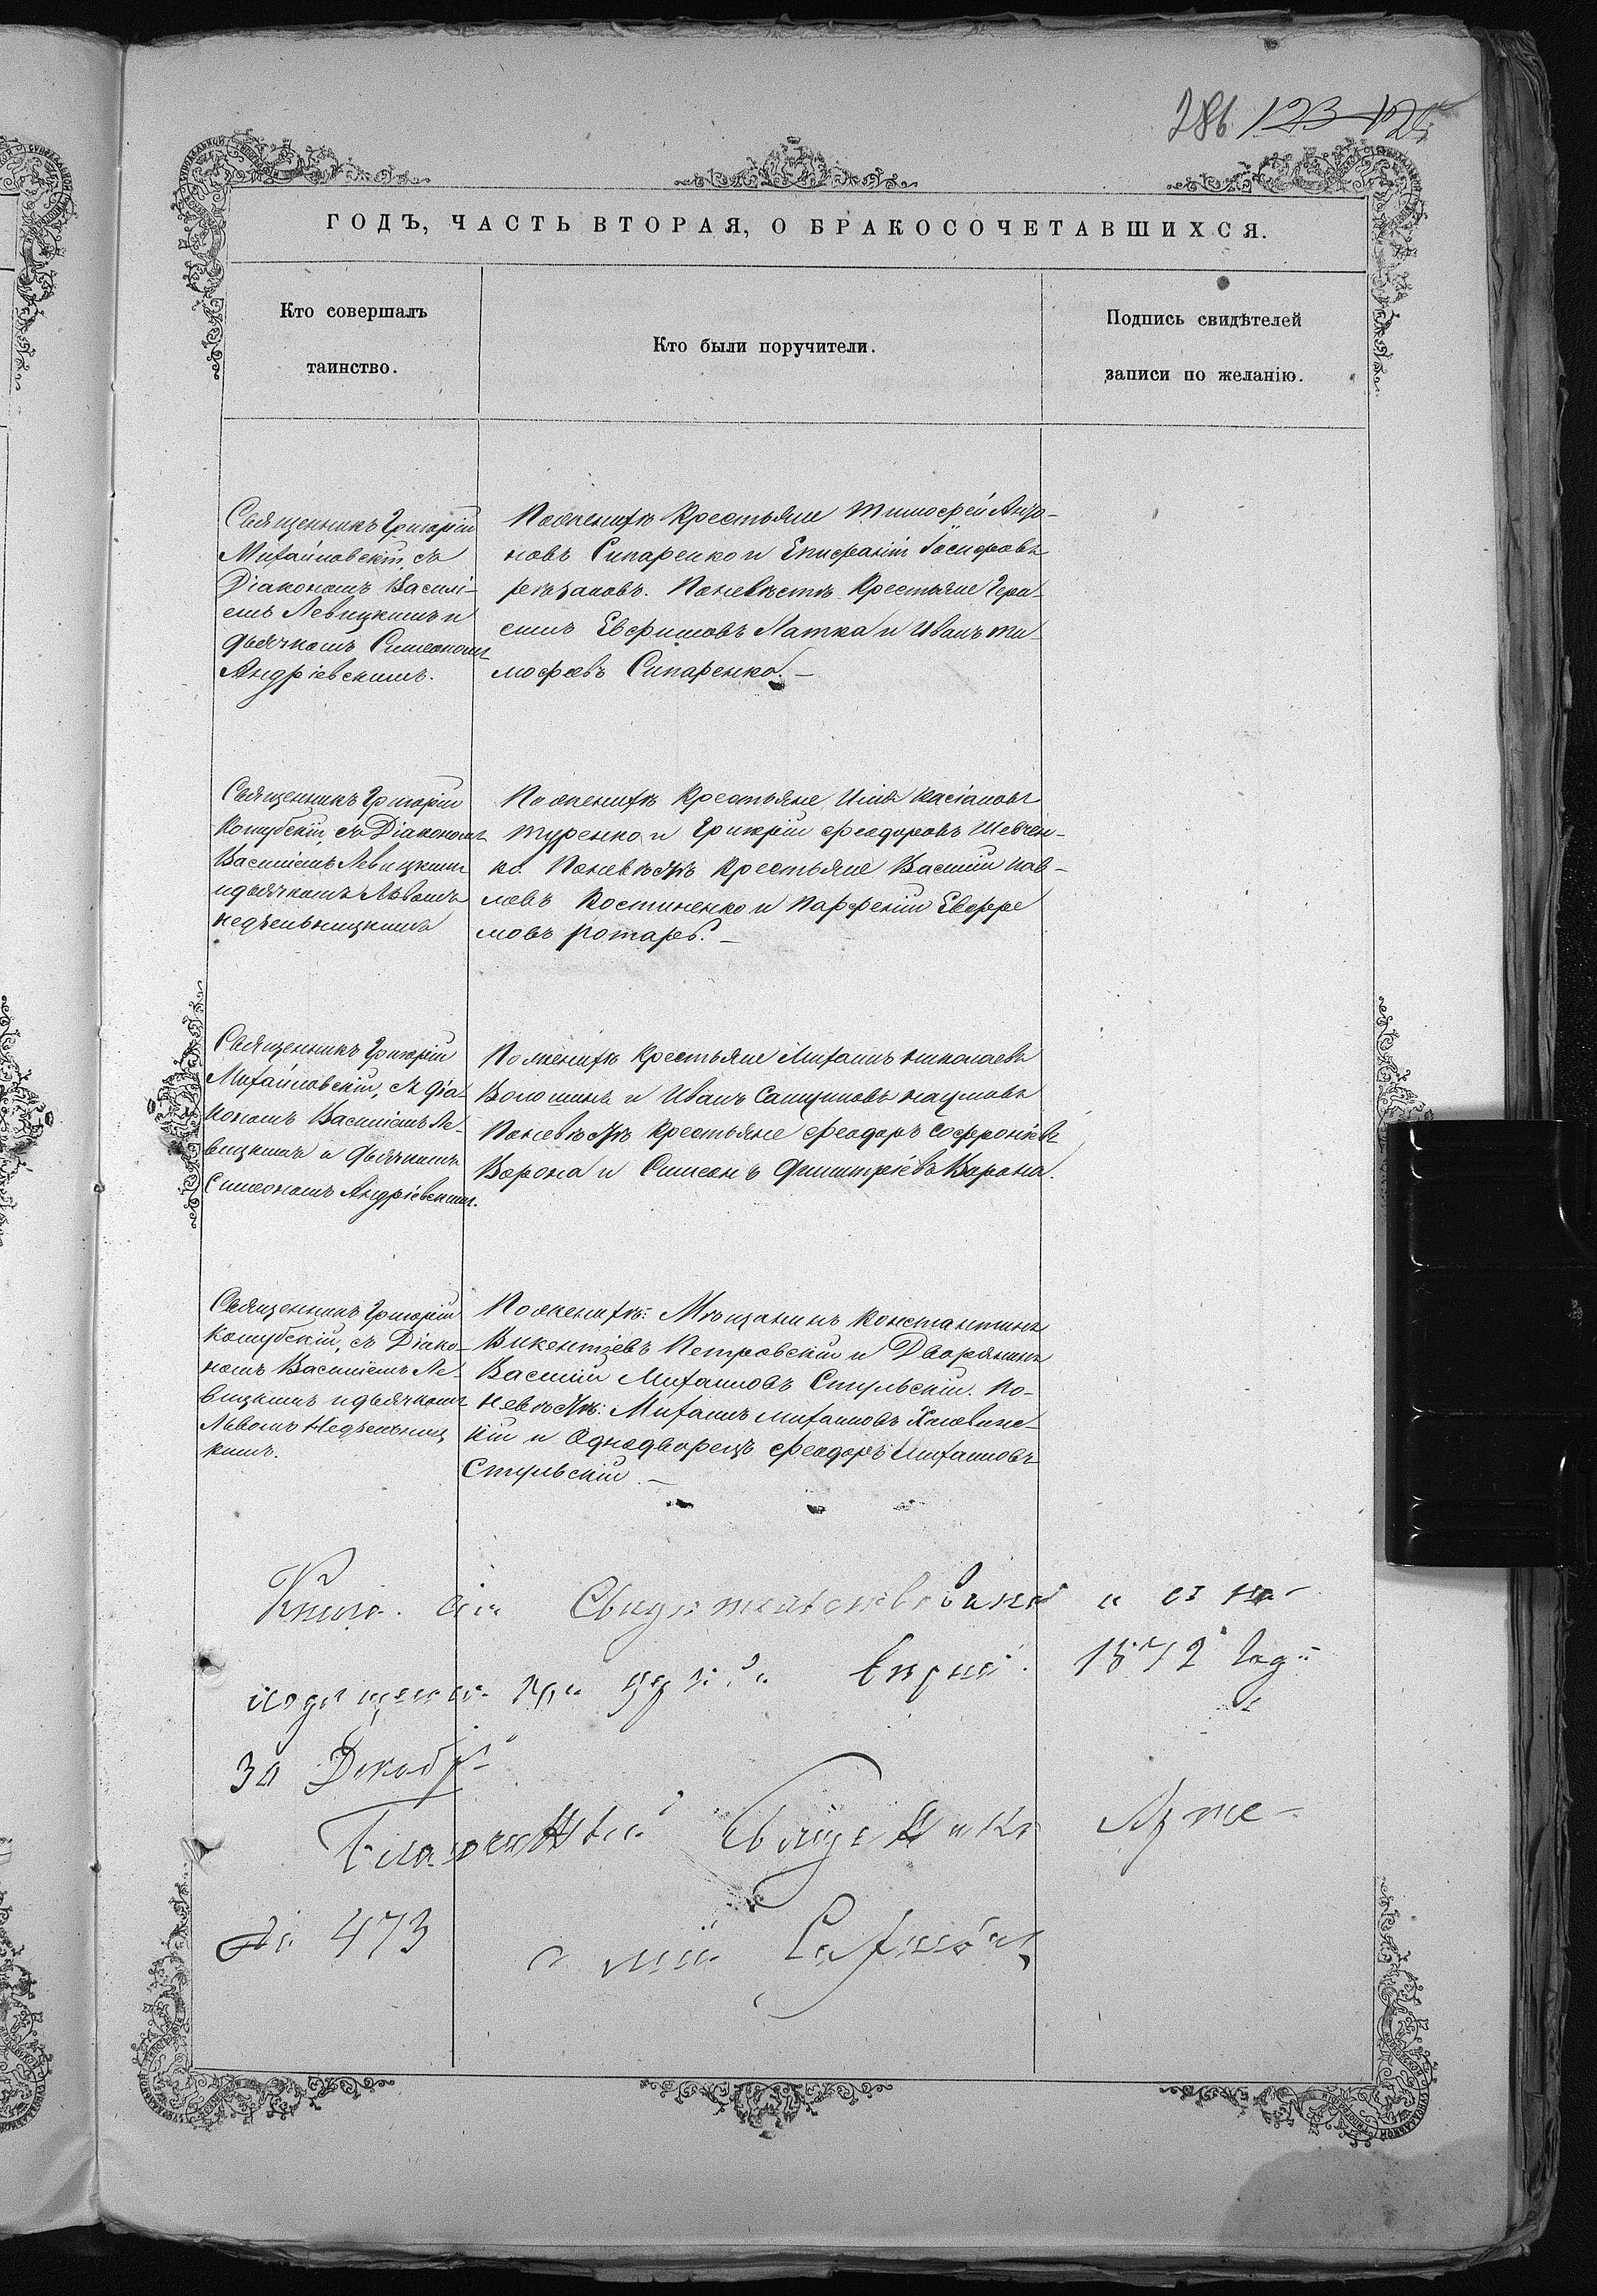 286 123 125
ГОДЪ, ЧАСТЬ ВТОРАЯ, О БРАКОСОЧЕТАВШИХСЯ.
Кто совершалъ
таинство.
Кто были поручители.
Подпись свидѣтелей
записи по желанію.
Священникъ Григорій
Михайловскій, съ
Діакономъ Василі-
емъ Левицкимъ и
дьячкомъ Симеономъ
Андріевскимъ.
По женихѣ Крестьяне Тимофей
новъ Сипаренко и Епифаній Іосифовъ
По невѣстѣ Крестьяне Гера
симъ Евфимовъ Латка и Иванъ Ти
мофѣевъ Сипаренко. —
Священникъ Григорій
Кошубскій, съ Діакономъ
Василіемъ Левицкимъ
и дьячкомъ Львомъ
Недѣльницкимъ
По женихѣ Крестьяне Илія Касіановъ
Туренко и Григорій Феодоровъ Шевчен-
ко. По невѣстѣ Крестьяне Василій Пав-
ловъ Костиненко и Парфеній Евфре
мовъ Ротарь. —
Священникъ Григорій
Михайловскій, съ діа-
кономъ Василіемъ Ле-
вицкимъ и дьячкомъ
Симеономъ Андріевскимъ.
По женихѣ Крестьяне Михаилъ Николаевъ
Волошинъ и Иванъ Наумовъ
По невѣстѣ Крестьяне Феодоръ Софроніевъ
Ворона и Симеонъ Димитріевъ Ворона.
Священникъ Григорій
Кошубскій, съ Діако-
номъ Василіемъ Ле-
вицкимъ и дьячкомъ
Львомъ Недѣльниц
кимъ.
По женихѣ: Мѣщанинъ Константинъ
Викентіевъ Петровскій и Дворянинъ
Василій Михаиловъ Стульскій. По-
невѣстѣ: Михаилъ Михаиловъ
кій и Однодворецъ Феодоръ Михаиловъ
Стульскій. —
Книга сія Свидѣтельствована и
1872 Года
30 Декабря
Благочинный Священникъ
473